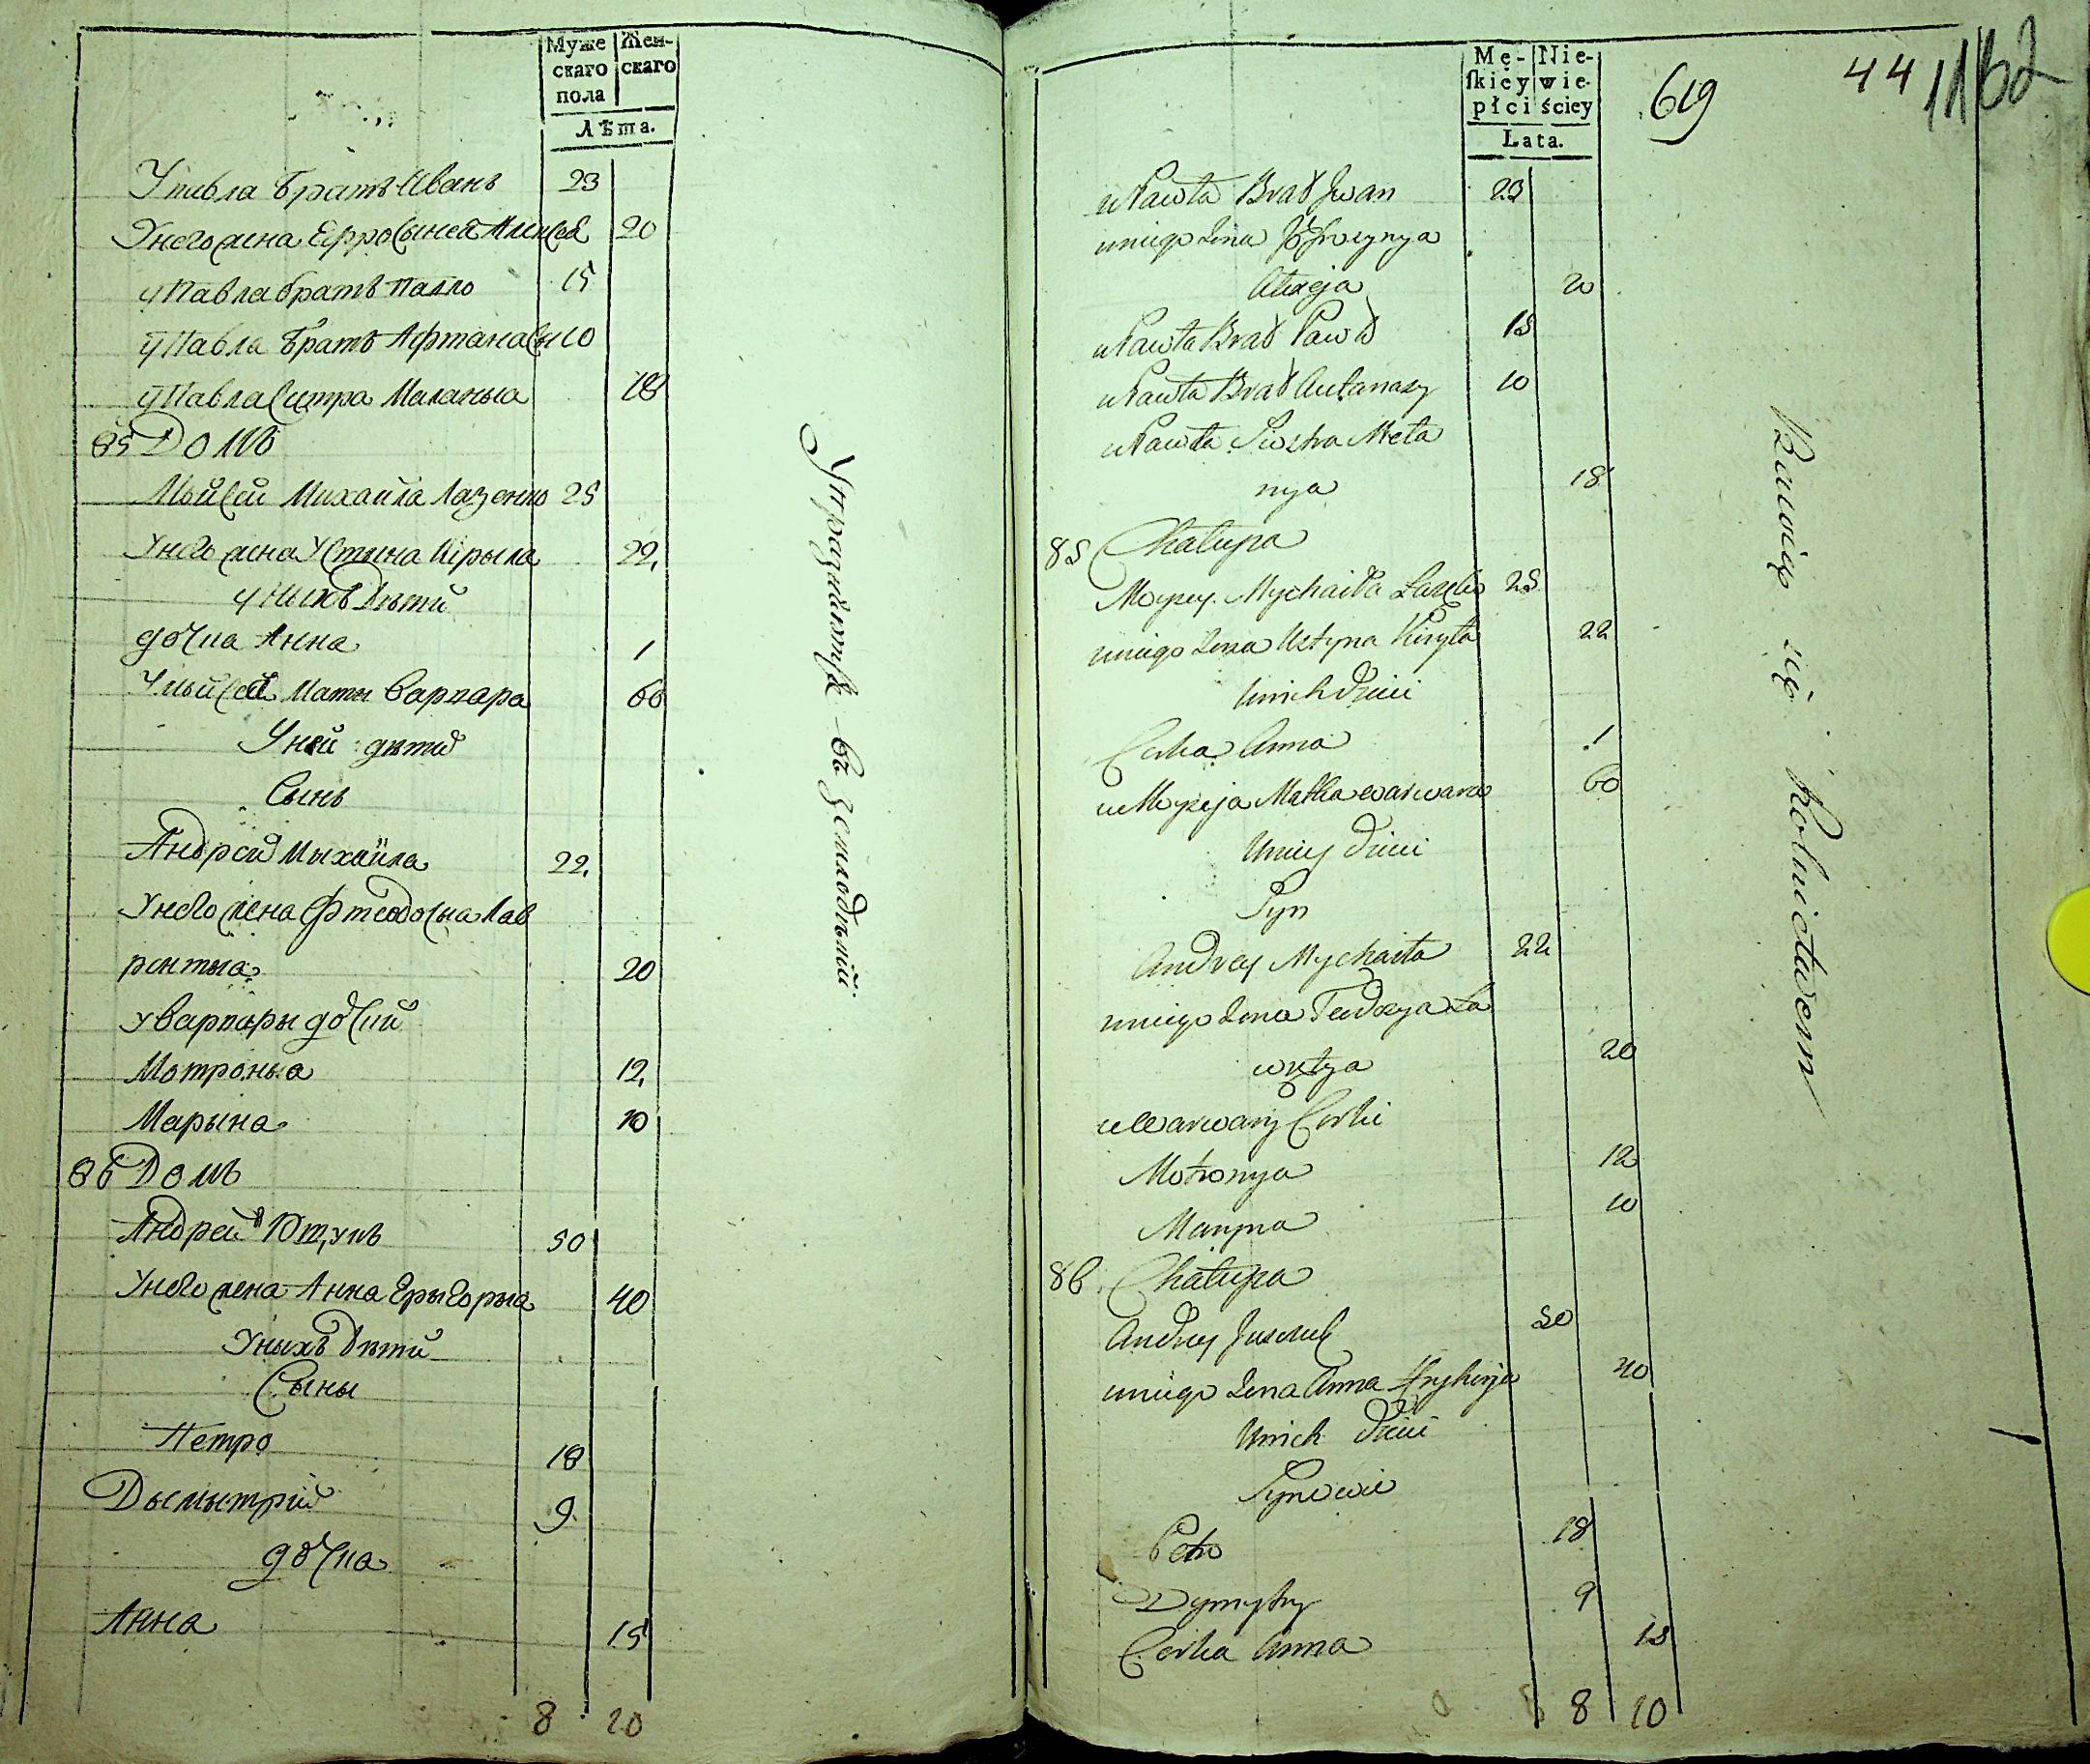 Муже Жен-
скаго скаго
пола
Лѣта.
У павла братъ Иванъ 23
Унего жена Ефросынея Алексея 20
у Павла братъ павло 15
у Павла братъ Афтанасы 10
у Павла систра Маланыа 18
85 Домъ
Мойсей Михайла Лазенко 25
Унего жена Устина Кірыла 22
у ныхъ Дѣти
дочка Анна 1
У мойсея маты варвара 60
У ней дѣти
Сынъ
Андрей Мыхайла 22
Унего жена Фтеодосыа Лав
рентыа 20
у варвары дочки
Мотроныа 12
Марына 10
86 Домъ
Андрей 50
Унего жена Анна Грыгорыа 40
Уныхъ Дѣти
Сыны
Петро 18
Дымытрий 9
дочка
Анна 15
8 10
Упражняются въ земледѣлій
Mę- Nie-
skiey wie-
płci ściey
Lata.
619
44
1162
u Pawła Brat Jwan 23
uniego żona Jefrosynya
Alexeja 20
u Pawła Brat Pawło 15
u Pawła Brat Autanazy 10
u Pawła Siostra Meła
nya 18
85 Chałupa
Moysey Mychaiła 25
uniego żona Ustyna Kiryła 22
Unich dzieci
Corka Anna 1
u Moyseja Matka warwara 60
Uniey dzieci
Syn
Andrey Mychaiła 22
uniego żona Teodozya Ła
20
u Warwary Corki
Motronya 12
Maryna 10
86 Chałupa
Andrey 50
uniego żona Anna Hryhorja 40
Unich dzieci
Synowie
Petro 18
Dymytry 9
Corka Anna 15
8 10
Bawią się Rolnictwem